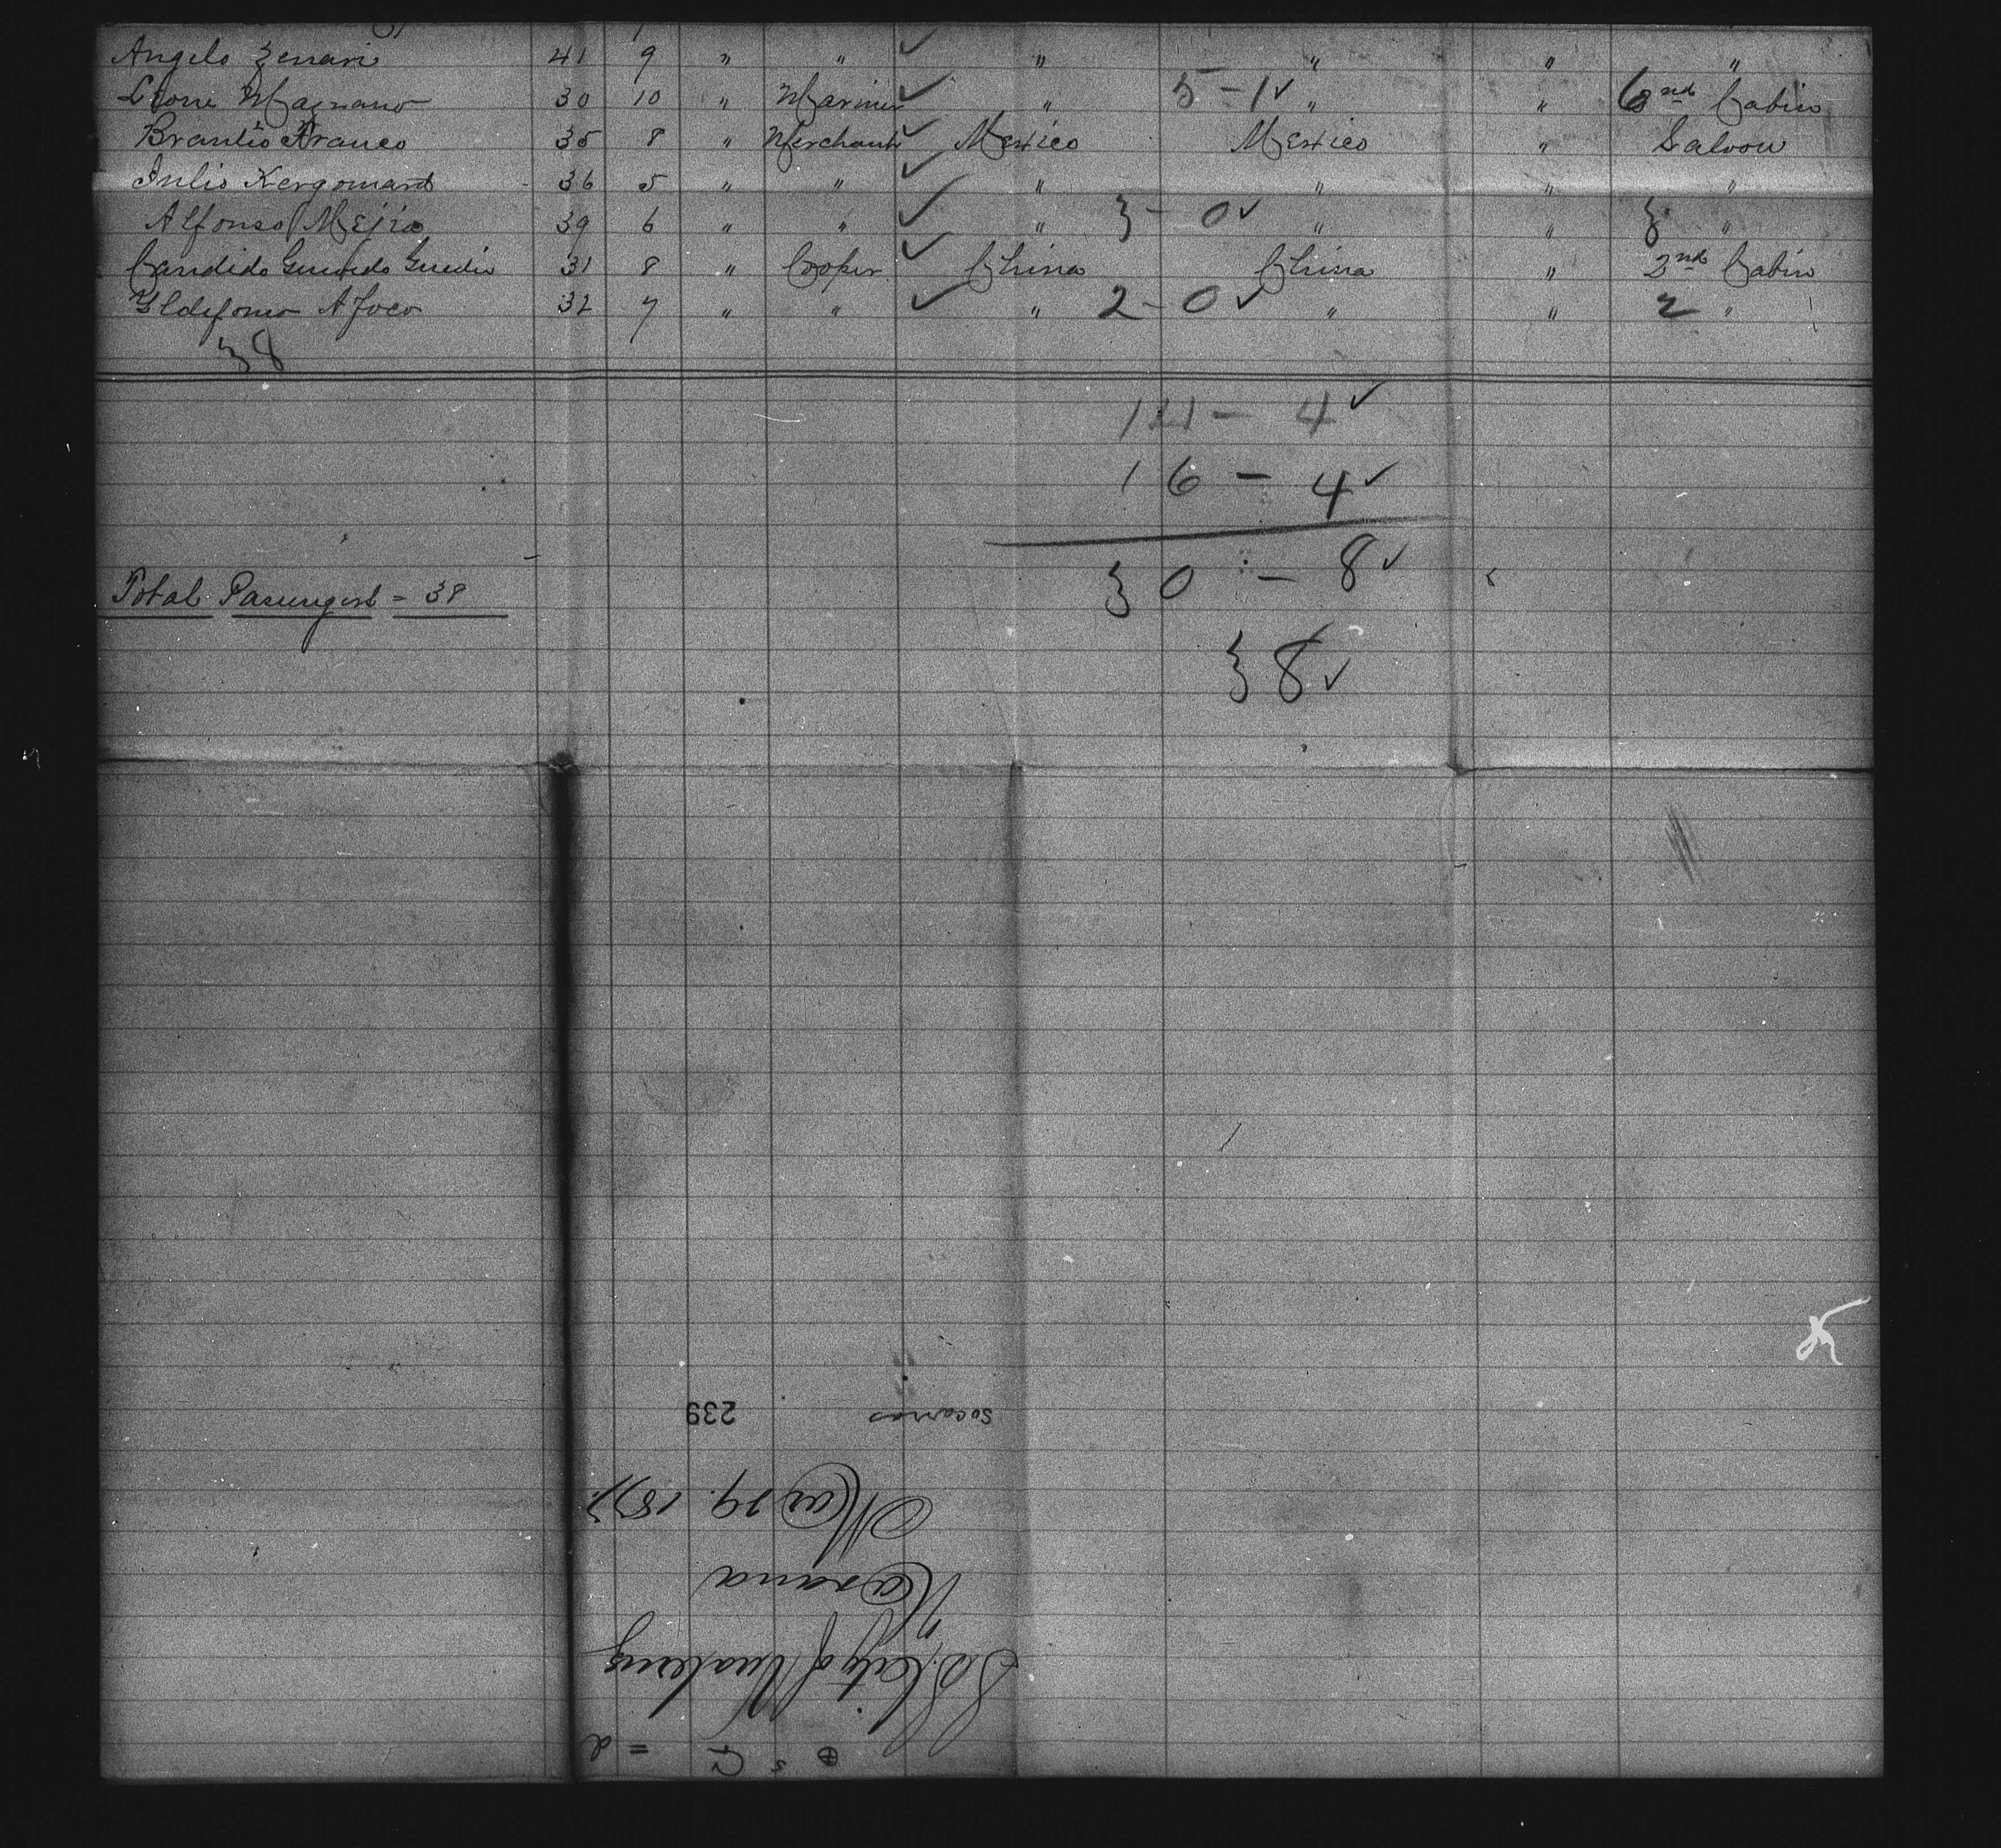 Angelo Zenari 41 9 " " ✓ " " " "
Leone Magnano 30 10 " Mariner ✓ " 5 - 1 ✓ " " 6 2nd Cabin
Braulio Franco 35 8 " Merchant ✓ Mexico Mexico " Saloon
Julio Kergomard 36 5 " " ✓ " " " "
Alfonso Mejia 39 6 " " ✓ " 3 - 0 ✓ " " 3 "
Candido Guardo 31 8 " Cooper ✓ China China " 2nd Cabin
Yldefonso 32 7 " " ✓ " 2 - 0 ✓ " " 2 "
38
14 - 4 ✓
16 - 4 ✓
30 - 8 ✓
Total Passengers = 38
38 ✓
SS City of
Havana
Mar 29. 1877.
239 socarras